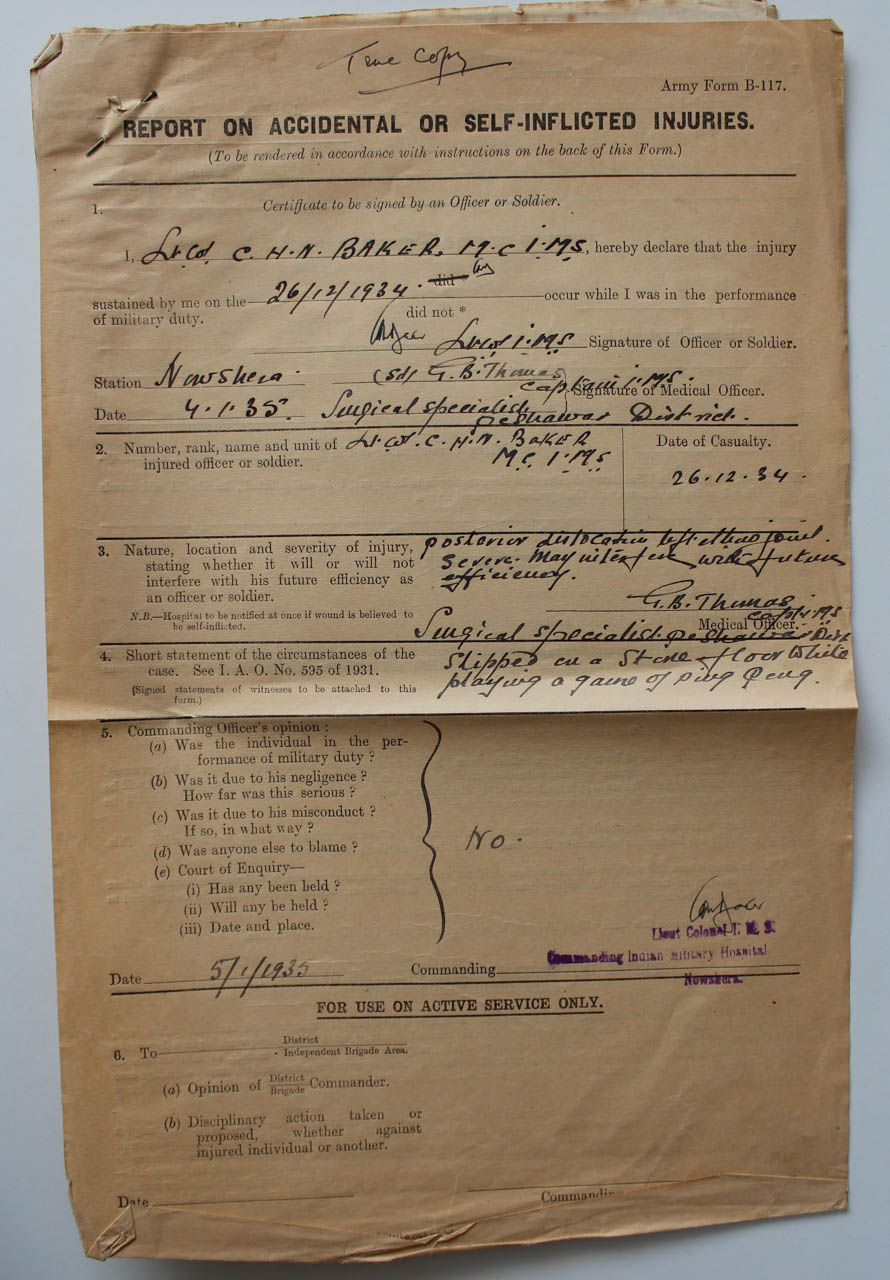 True Copy
Army Form B-117.
REPORT ON ACCIDENTAL OR SELF-INFLICTED INJURIES.
(To be rendered in accordance with instructions on the back of this Form.)
1. Certificate to be signed by an Officer or Soldier.
I, Lt Col. C. H. N. BAKER, M.C I.M.S, hereby declare that the injury
sustained by me on the 26/12/1934. did * occur while I was in the performance
of military duty. did not *
Lt Col I.M.S Signature of Officer or Soldier.
Station Nowshera. (Sd) G. B. Thomas
Captain I.M.S. Signature of Medical Officer.
Date 4.1.35. Surgical specialist Peshawar District.
2. Number, rank, name and unit of injured officer or soldier.
Lt. Col. C. H. N. BAKER
M.C. I.M.S
Date of Casualty.
26.12.34.
3. Nature, location and severity of injury,
stating whether it will or will not
interfere with his future efficiency as
an officer or soldier.
N.B.—Hospital to be notified at once if wound is believed to
be self-inflicted.
posterior dislocation left elbow joint.
Severe. May interfere with future
efficiency.
G. B. Thomas
Capt I.M.S
Medical Officer.
Surgical specialist Peshawar Dist
4. Short statement of the circumstances of the
case. See I. A. O. No. 595 of 1931.
(Signed statements of witnesses to be attached to this
form.)
Slipped on a Stone floor while
playing a game of Ping Pong.
5. Commanding Officer's opinion :
(a) Was the individual in the per-
formance of military duty ?
(b) Was it due to his negligence ?
How far was this serious ?
(c) Was it due to his misconduct ?
If so, in what way ?
(d) Was anyone else to blame ?
(e) Court of Enquiry—
(i) Has any been held ?
(ii) Will any be held ?
(iii) Date and place.
No.
Lieut Colonel I. M. S.
Commanding Indian Military Hospital
Nowshera.
Date 5/1/1935 Commanding
FOR USE ON ACTIVE SERVICE ONLY.
6. To District
Independent Brigade Area.
(a) Opinion of District Brigade Commander.
(b) Disciplinary action taken or
proposed, whether against
injured individual or another.
Date Commanding